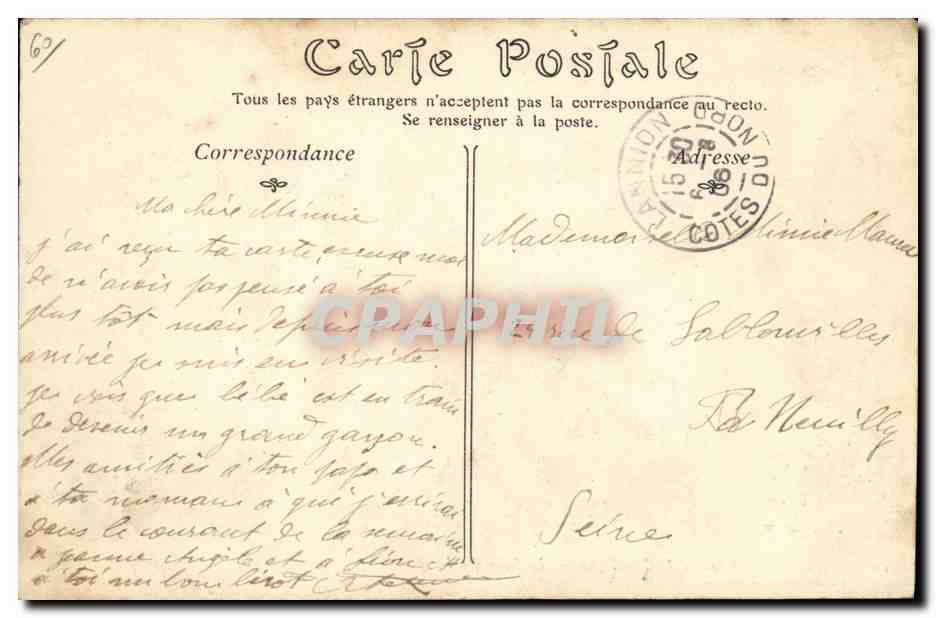 60/
Carte Postale
Tous les pays étrangers n'acceptent pas la correspondance au recto.
Se renseigner à la poste.
Correspondance
Ma chère Minnie
j'ai reçu ta carte, excuse moi
de n'avoir pas pensé à toi
plus tôt mais depuis mon
arrivée je suis en visite.
je vois que bébé est en train
de devenir un grand garçon.
Mes amitiés à ton papa et
à ta maman à qui j'écrirai
dans le courant de la semaine
à Angèle et à Léon et
à toi un bon
Adresse
LANNION COTES DU NORD
15 30
06
Mademoiselle Minnie
rue de Sablonville
à Neuilly
Seine
CPARPHIL